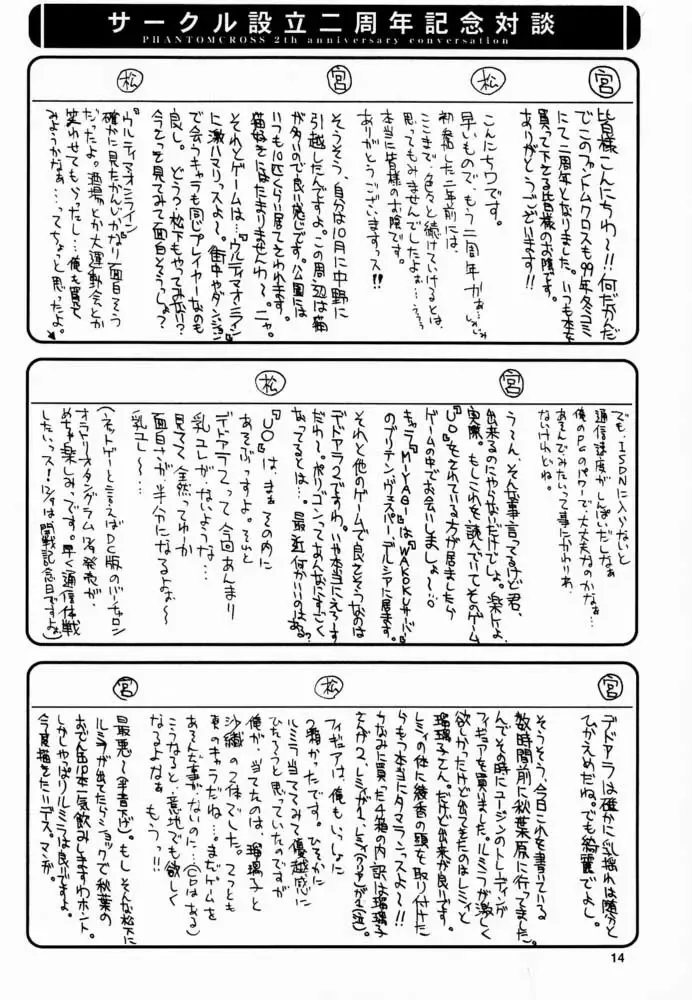 サークル設立二周年記念対談
PHANTOMCROSS 2th anniversary conversation
宮
皆様こんにちわ~!!何だかんだ
でこのファントムクロスも99年冬コミ
にて二周年となりました。いつも本を
買って下さる皆様のお陰です。
ありがとうございます!!
松
こんにちワです。
早いもので、もう二周年かぁ…しみじみ
初参加した二年前には、
ここまで、色々と続けていけるとは、
思ってもみませんでしたよぉ…
本当に皆様のお陰です。
ありがとうございますっス!!
宮
そうそう、自分は10月に中野に
引越したんですよ。この周辺は猫
が多いので良い感じです。公園には
いつも10匹くらい居てさわれます。
猫好きにはたまりませんわ~。ニャ。
それとゲームは…『ウルティマオンライン』
に激ハマリっスよ~。街中やダンジョン
で会うキャラも同じプレイヤーなのも
良し。どう?松下もやってみない?
今さっき見てみて面白そうっしょ?
松
『ウルティマオンライン』
確かに見たかんじかなり面白そう
だったよ。酒場とか大運動会とか
笑わせてもらったし…俺も買って
みようかなぁ…ってちょっと思ったよ。
でも、ISDNに入らないと
通信速度がしんぱいだしなぁ
俺のPCのパワーで大丈夫なのかなぁ…
あそんでみたいって事にかわりわ、
ないけれどね。
宮
う~ん、そんな事言ってるけど君、
出来るのにやらないだけでしょ。楽だよ、
実際。もしこれを読んでいてそのゲーム
『UO』をされている方が居ましたら
ゲームの中でお会いしましょ~!:o
キャラ『MIYABI』は『WAKOKU』サーバー
のブリテン、ヴェスパー、デルシアに居ます。
それと他のゲームで良さそうなのは
デドアラ2ですわ。いや本当にえろーす
だわ~。ポリゴンってあんなにすごく
なってるとは…。最近何かいいのはある?
松
『UO』は、まぁその内に
あそぶっすよ。それと
デドアラ2って今回あんまり
乳ユレが、ないような…
見てて、全然ってゆーか
面白さが、半分になるよぉ~
(乳ユレ~)
(ネットゲーと言えばDC版のバーチャロン
オラトリオタングラム12/9発売が、
めちゃ楽しみっです。早く通信体戦
したいっス!12/9は開戦記念日ですよぉ)
宮
デドアラは確かに乳揺れは随分と
ひかえめだね。でも綺麗でよし。
そうそう、今日これを書いている
数時間前に秋葉原に行ってました。
んでその時にユージンのトレーディング
フィギュアを買いました。ルミラが激しく
欲しかったけど出てきたのはレミィと
瑠璃子さん。だけど出来が良いです。
レミィの体に綾香の頭を取り付けた
らもう本当にタマランっスよ~!!
ちなみに買った4箱の内訳は瑠璃子
さんが2、レミィが1、レミィ(2Pカラー)が1(泣)。
松
フィギュアは、俺もいっしょに
2箱かったです。ひそかに
ルミラ当ててみて優越感に
ひたろうと思っていたのですが
俺が、当てたのは、瑠璃子と
沙織の2体でした。てっとも
東のキャラだね…まだゲームを
あそんだ事がないのに…(CDはある)
こうなると、意地でも欲しく
なるよなぁ もうっ!!
宮
最悪~(半音下がり)。もしそんな松下に
ルミラが出てたらショックで秋葉の
おでん缶10本一気飲みしますわホント。
しかしやっぱりルミラは良いですよ。
今度描きたいデス。マンガ。
14